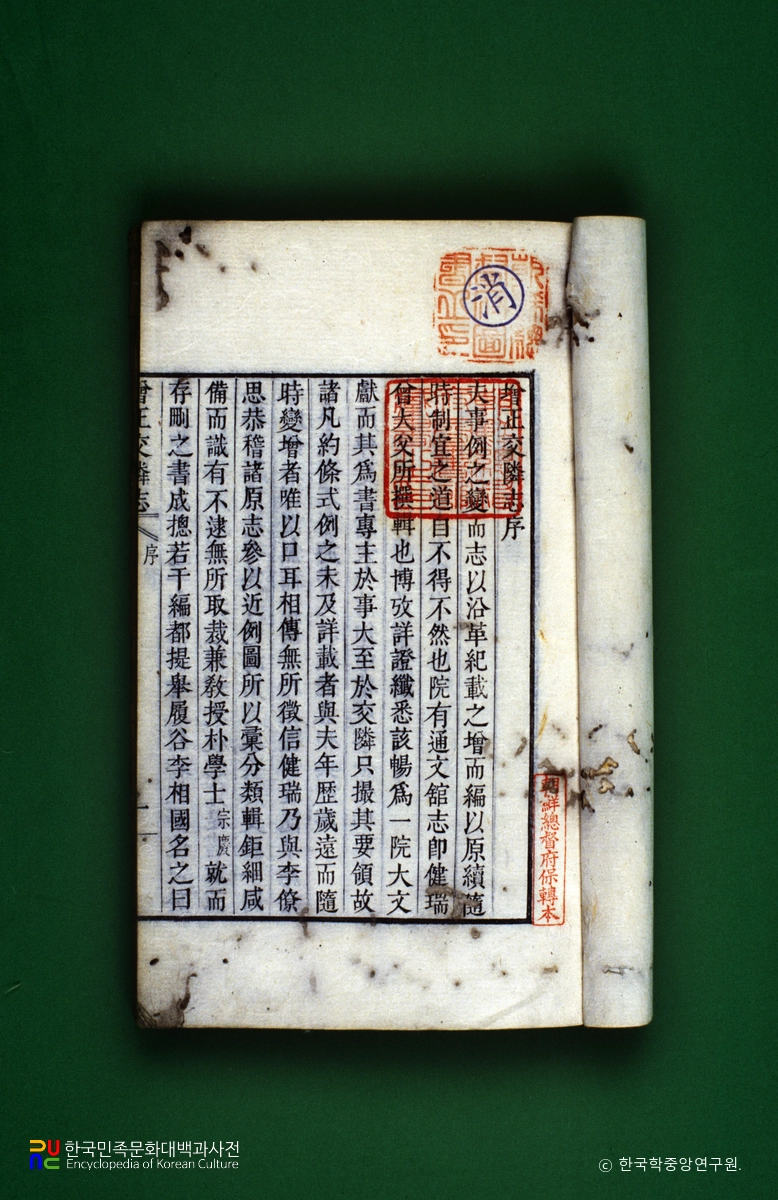 增正交隣志序
夫事例之變而志以沿革紀載之增而編以原續隨
時制宜之道自不得不然也院有通文舘志卽健瑞
曾大父所撰輯也博攷詳證纖悉該暢爲一院大文
獻而其爲書專主於事大至於交隣只撮其要領故
諸凡約條式例之未及詳載者與夫年歷歲遠而隨
時變增者唯以口耳相傳無所徵信健瑞乃與李僚
思恭稽諸原志參以近例圖所以彙分類輯鉅細咸
備而識有不逮無所取裁兼敎授朴學士宗慶就而
存刪之書成摠若干編都提擧履谷李相國名之曰
增正交隣志 序 一
消
朝鮮總督府保轉本
한국민족문화대백과사전
Encyclopedia of Korean Culture
ⓒ 한국학중앙연구원.